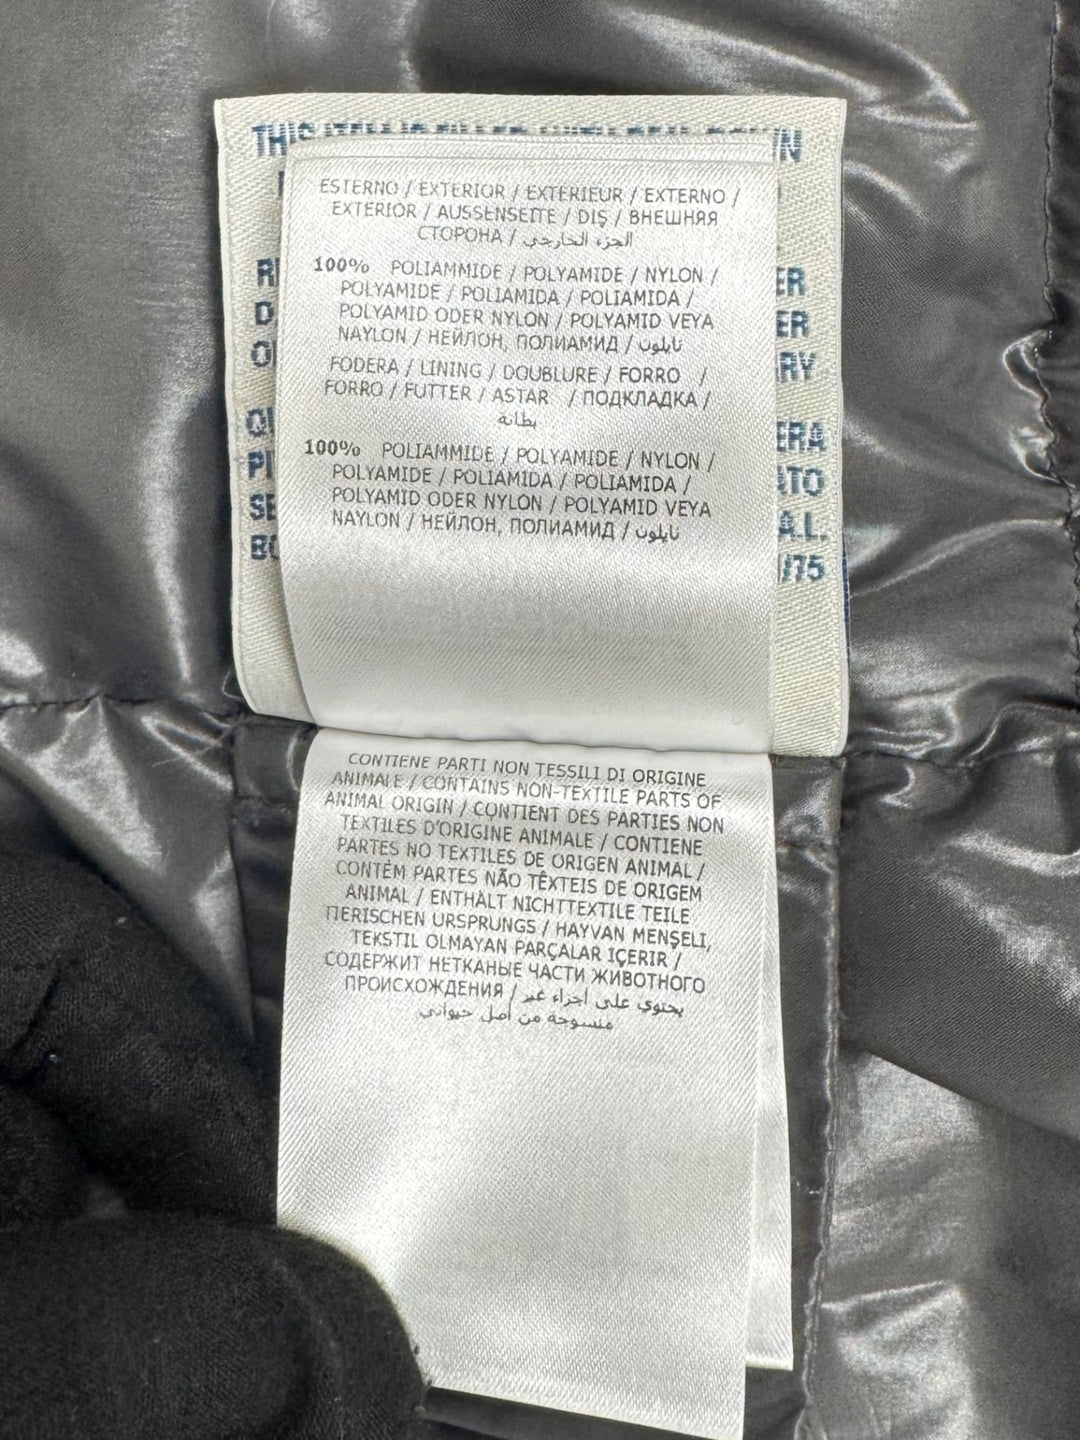 THIS
ESTERNO / EXTERIOR / EXTERIEUR / EXTERNO /
EXTERIOR / AUSSENSEITE / DIŞ / ВНЕШНЯЯ
СТОРОНА / الجزء الخارجي
100% POLIAMMIDE / POLYAMIDE / NYLON /
POLYAMIDE / POLIAMIDA / POLIAMIDA /
POLYAMID ODER NYLON / POLYAMID VEYA
NAYLON / НЕЙЛОН, ПОЛИАМИД / نايلون
FODERA / LINING / DOUBLURE / FORRO /
FORRO / FUTTER / ASTAR / ПОДКЛАДКА /
بطانة
100% POLIAMMIDE / POLYAMIDE / NYLON /
POLYAMIDE / POLIAMIDA / POLIAMIDA /
POLYAMID ODER NYLON / POLYAMID VEYA
NAYLON / НЕЙЛОН, ПОЛИАМИД / نايلون
CONTIENE PARTI NON TESSILI DI ORIGINE
ANIMALE / CONTAINS NON-TEXTILE PARTS OF
ANIMAL ORIGIN / CONTIENT DES PARTIES NON
TEXTILES D'ORIGINE ANIMALE / CONTIENE
PARTES NO TEXTILES DE ORIGEN ANIMAL /
CONTÉM PARTES NÃO TÊXTEIS DE ORIGEM
ANIMAL / ENTHÄLT NICHTTEXTILE TEILE
TIERISCHEN URSPRUNGS / HAYVAN MENŞELİ,
TEKSTIL OLMAYAN PARÇALAR IÇERIR /
СОДЕРЖИТ НЕТКАНЫЕ ЧАСТИ ЖИВОТНОГО
ПРОИСХОЖДЕНИЯ / يحتوي على اجزاء غير
منسوجة من اصل حيواني